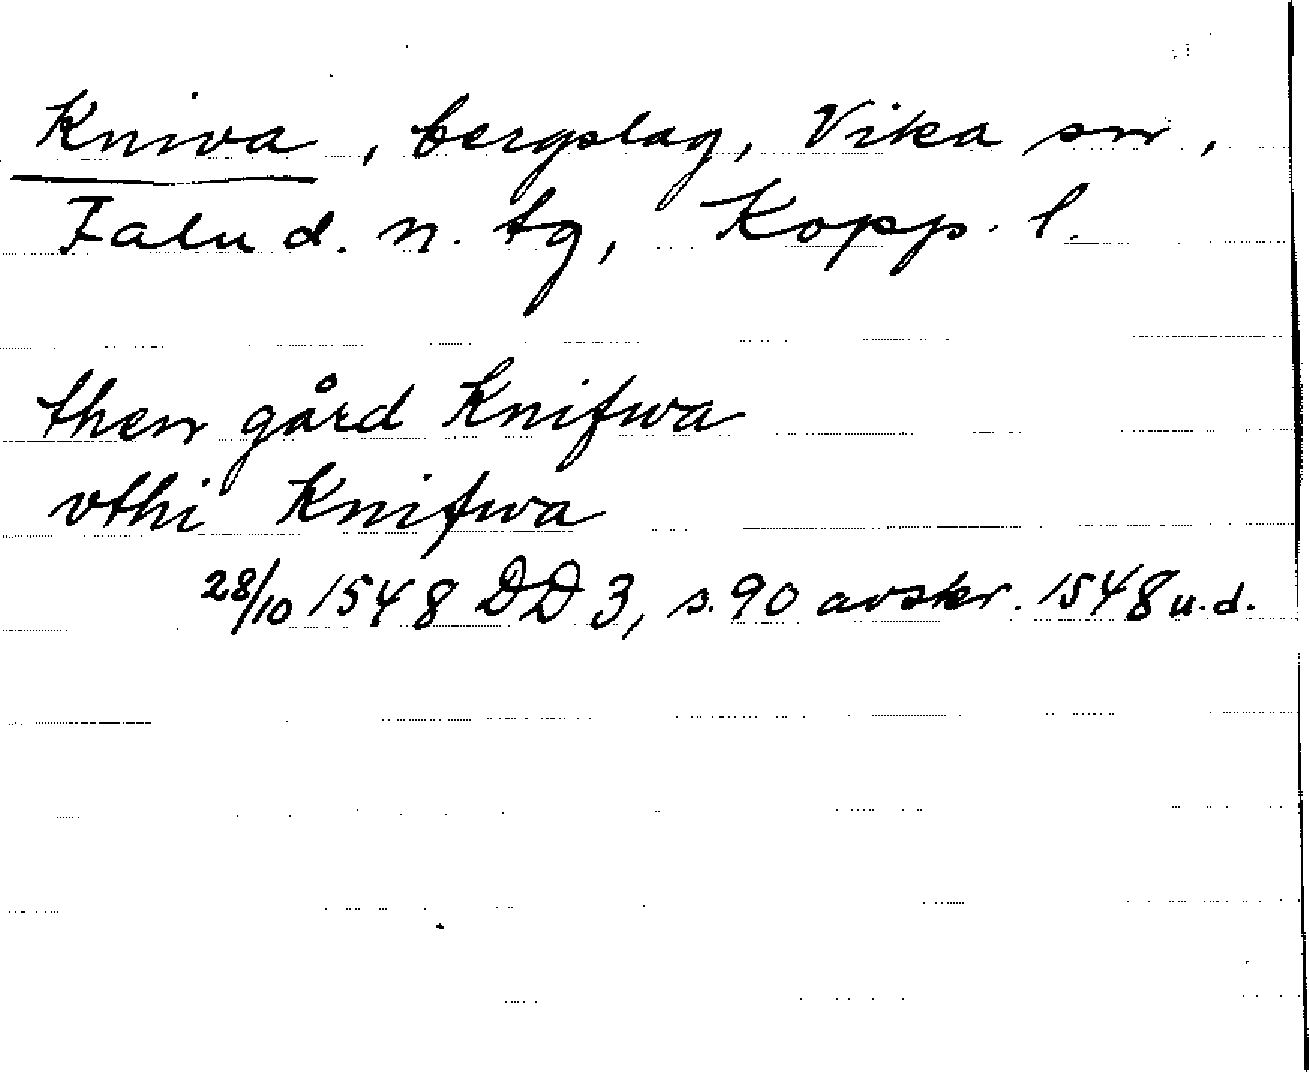 Kniva, bergslag, Vika sn,
Falu d. n. tg, Kopp. l.
then gård Knifwa
vthi Knifwa
28/10 1548 DD 3, s. 90 avskr. 1548 u.d.